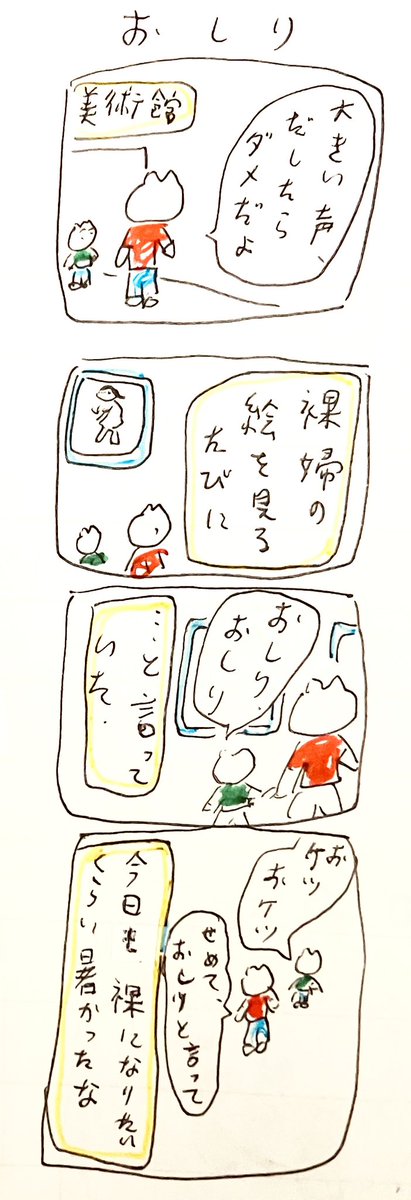 おしり
美術館
大きい声、
だしたら
ダメだよ
裸婦の
絵を見る
たびに
おしり、
おしり
…と言って
いた.
お
ケツ
おケツ
せめて、
おしりと言って
今日も裸になりたい
くらい暑かったな